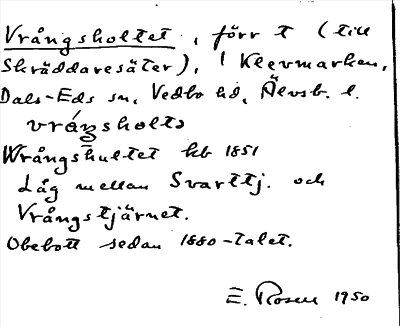 Vrångsholtet, förr t (till
Skräddaresäter), i Klevmarken,
Dals-Eds sn, Vedbo hd, Älvsb. l.
vråŋsholtə
Wrångshultet hb 1851
Låg mellan Svarttj. och
Vrångstjärnet.
Obebott sedan 1880-talet.
E. Rosen 1950